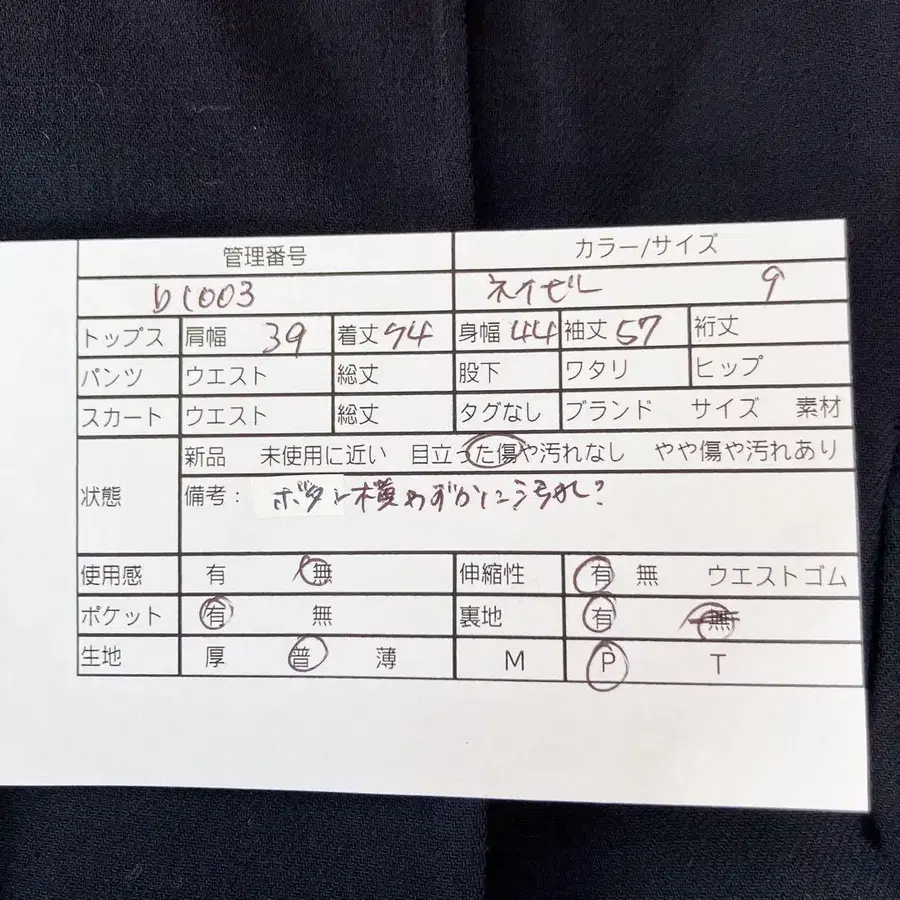 管理番号 カラー/サイズ
b1003 ネイビー 9
トップス 肩幅 39 着丈 74 身幅 44 袖丈 57 裄丈
パンツ ウエスト 総丈 股下 ワタリ ヒップ
スカート ウエスト 総丈 タグなし ブランド サイズ 素材
新品 未使用に近い 目立った傷や汚れなし やや傷や汚れあり
状態 備考: ボタン横わずかに汚れ?
使用感 有 無 伸縮性 有 無 ウエストゴム
ポケット 有 無 裏地 有 無
生地 厚 普 薄 M P T